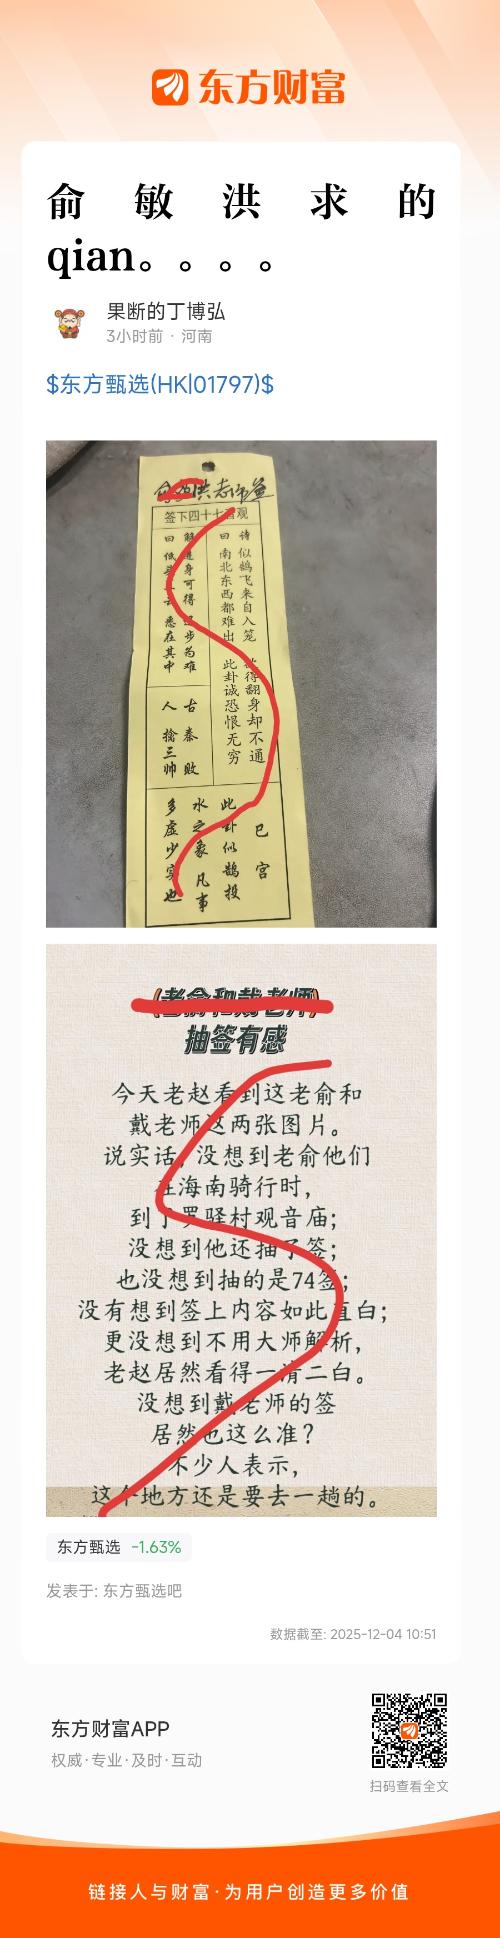 东方财富
俞敏洪求的
qian。。。。
果断的丁博弘
3小时前 · 河南
$东方甄选(HK|01797)$
洪老师签
签下四十七首观
诗曰
似鹞飞来自入笼
南北东西都难出
得翻身却不通
此卦诚恐恨无穷
解曰
身可得
步为难
低
悉在其中
古人
秦败
擒三帅
巳宫
此卦似鹞投
水之象 凡事
多虚少实也
(老俞和戴老师)
抽签有感
今天老赵看到这老俞和
戴老师这两张图片。
说实话,没想到老俞他们
在海南骑行时,
到了罗驿村观音庙;
没想到他还抽了签;
也没想到抽的是74签;
没有想到签上内容如此直白;
更没想到不用大师解析,
老赵居然看得一清二白。
没想到戴老师的签
居然也这么准?
不少人表示,
这个地方还是要去一趟的。
东方甄选 -1.63%
发表于: 东方甄选吧
数据截至: 2025-12-04 10:51
东方财富APP
权威·专业·及时·互动
扫码查看全文
链接人与财富·为用户创造更多价值